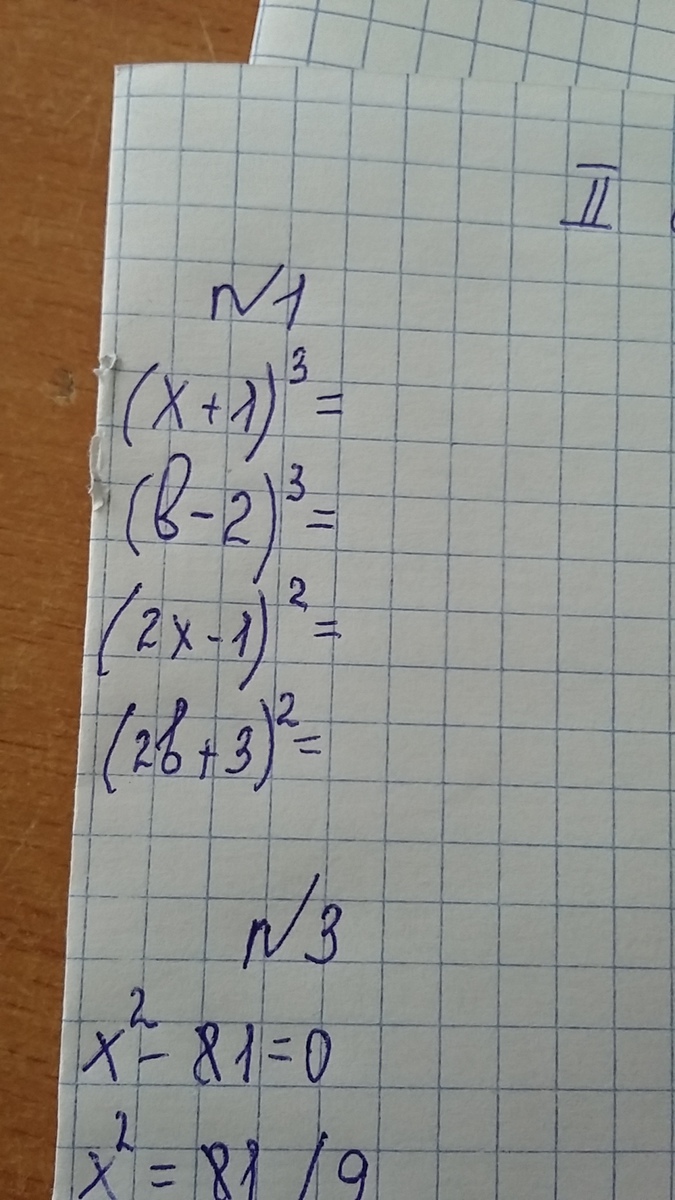 II
№1
(x+1)³=
(b-2)³=
(2x-1)²=
(2b+3)²=
№3
x²-81=0
x²=81 /9